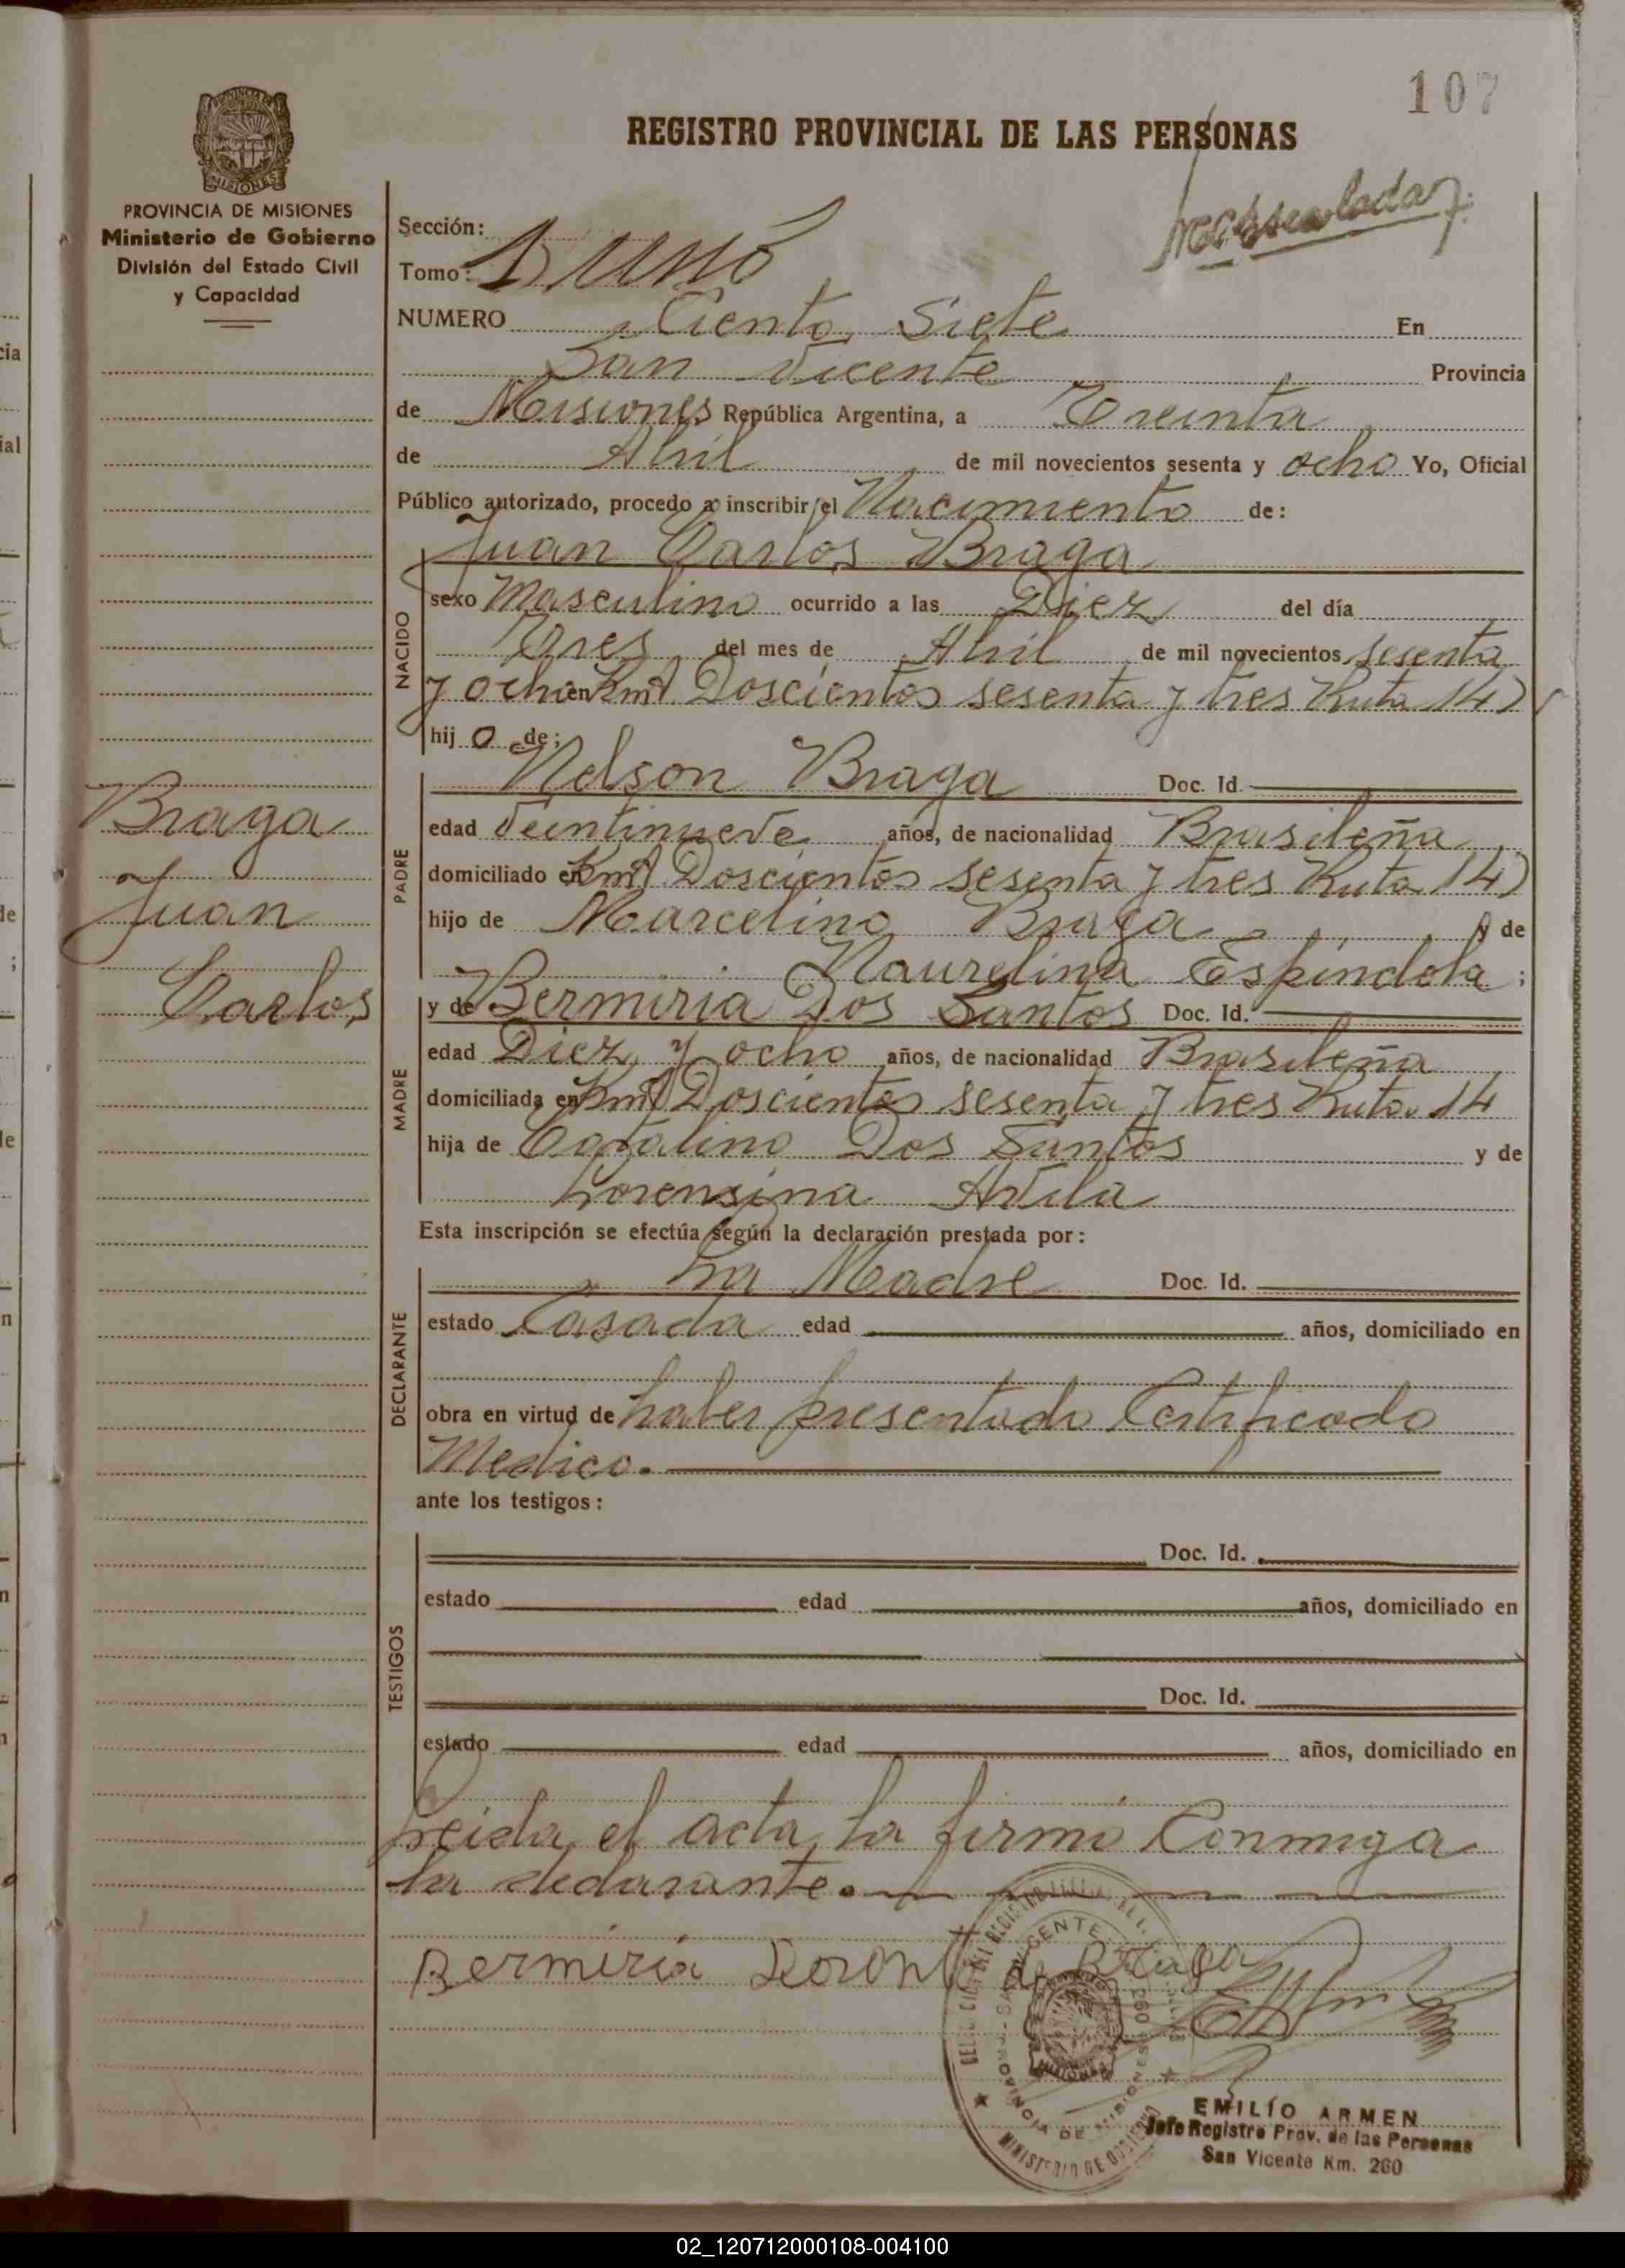 107
REGISTRO PROVINCIAL DE LAS PERSONAS
PROVINCIA DE MISIONES
Ministerio de Gobierno
División del Estado Civil
y Capacidad
Sección:
Tomo: 1) uno
NUMERO Ciento Siete En
San Vicente Provincia
de Misiones República Argentina, a Treinta
de Abril de mil novecientos sesenta y ocho Yo, Oficial
Público autorizado, procedo a inscribir el Nacimiento de:
Juan Carlos Braga
NACIDO
sexo Masculino ocurrido a las Diez del día
Tres del mes de Abril de mil novecientos sesenta
y ocho en Km) Doscientos sesenta y tres Ruta 14)
hijo de:
Nelson Braga Doc. Id.
PADRE
edad Veintinueve años, de nacionalidad Brasileña
domiciliado en Km) Doscientos sesenta y tres Ruta 14)
hijo de Marcelino Braga y de
Maurelina Espindola;
y de Bermiria Dos Santos Doc. Id.
MADRE
edad Diez y ocho años, de nacionalidad Brasileña
domiciliada en Km) Doscientos sesenta y tres Ruta 14
hija de Catalino Dos Santos y de
Lorensina Avila
Braga
Juan
Carlos
Esta inscripción se efectúa según la declaración prestada por:
La Madre Doc. Id.
DECLARANTE
estado Casada edad años, domiciliado en
obra en virtud de haber presentado Certificado
Medico.
ante los testigos:
TESTIGOS
Doc. Id.
estado edad años, domiciliado en
Doc. Id.
estado edad años, domiciliado en
Leida el acta, la firmó Conmigo
la declarante.
Bermiria de Braga
SAN VICENTE
PROVINCIA DE MISIONES
MINISTERIO DE GOBIERNO
MISIONES
EMILIO ARMEN
Jefe Registro Prov. de las Personas
San Vicente Km. 260
02_120712000108-004100